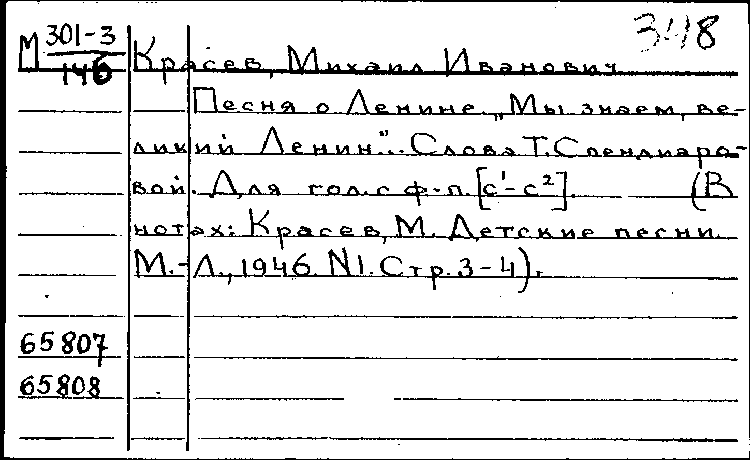 348
М 301-3/146
Красев, Михаил Иванович
Песня о Ленине „Мы знаем, ве-
ликий Ленин".. Слова Т. Спендиаро-
вой. Для гол. с ф-п. [c¹-c²]. (В
нотах: Красев, М. Детские песни.
М.-Л., 1946. N1. Стр. 3-4).
65807
65808